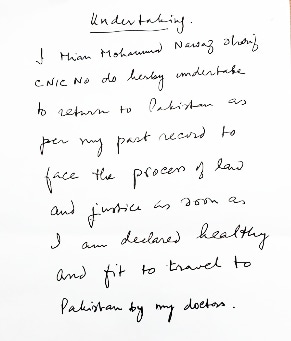 Undertaking.
I Mian Mohammad Nawaz Sharif
CNIC No do herby undertake
to return to Pakistan as
per my past record to
face the process of law
and justice as soon as
I am declared healthy
and fit to travel to
Pakistan by my doctors.